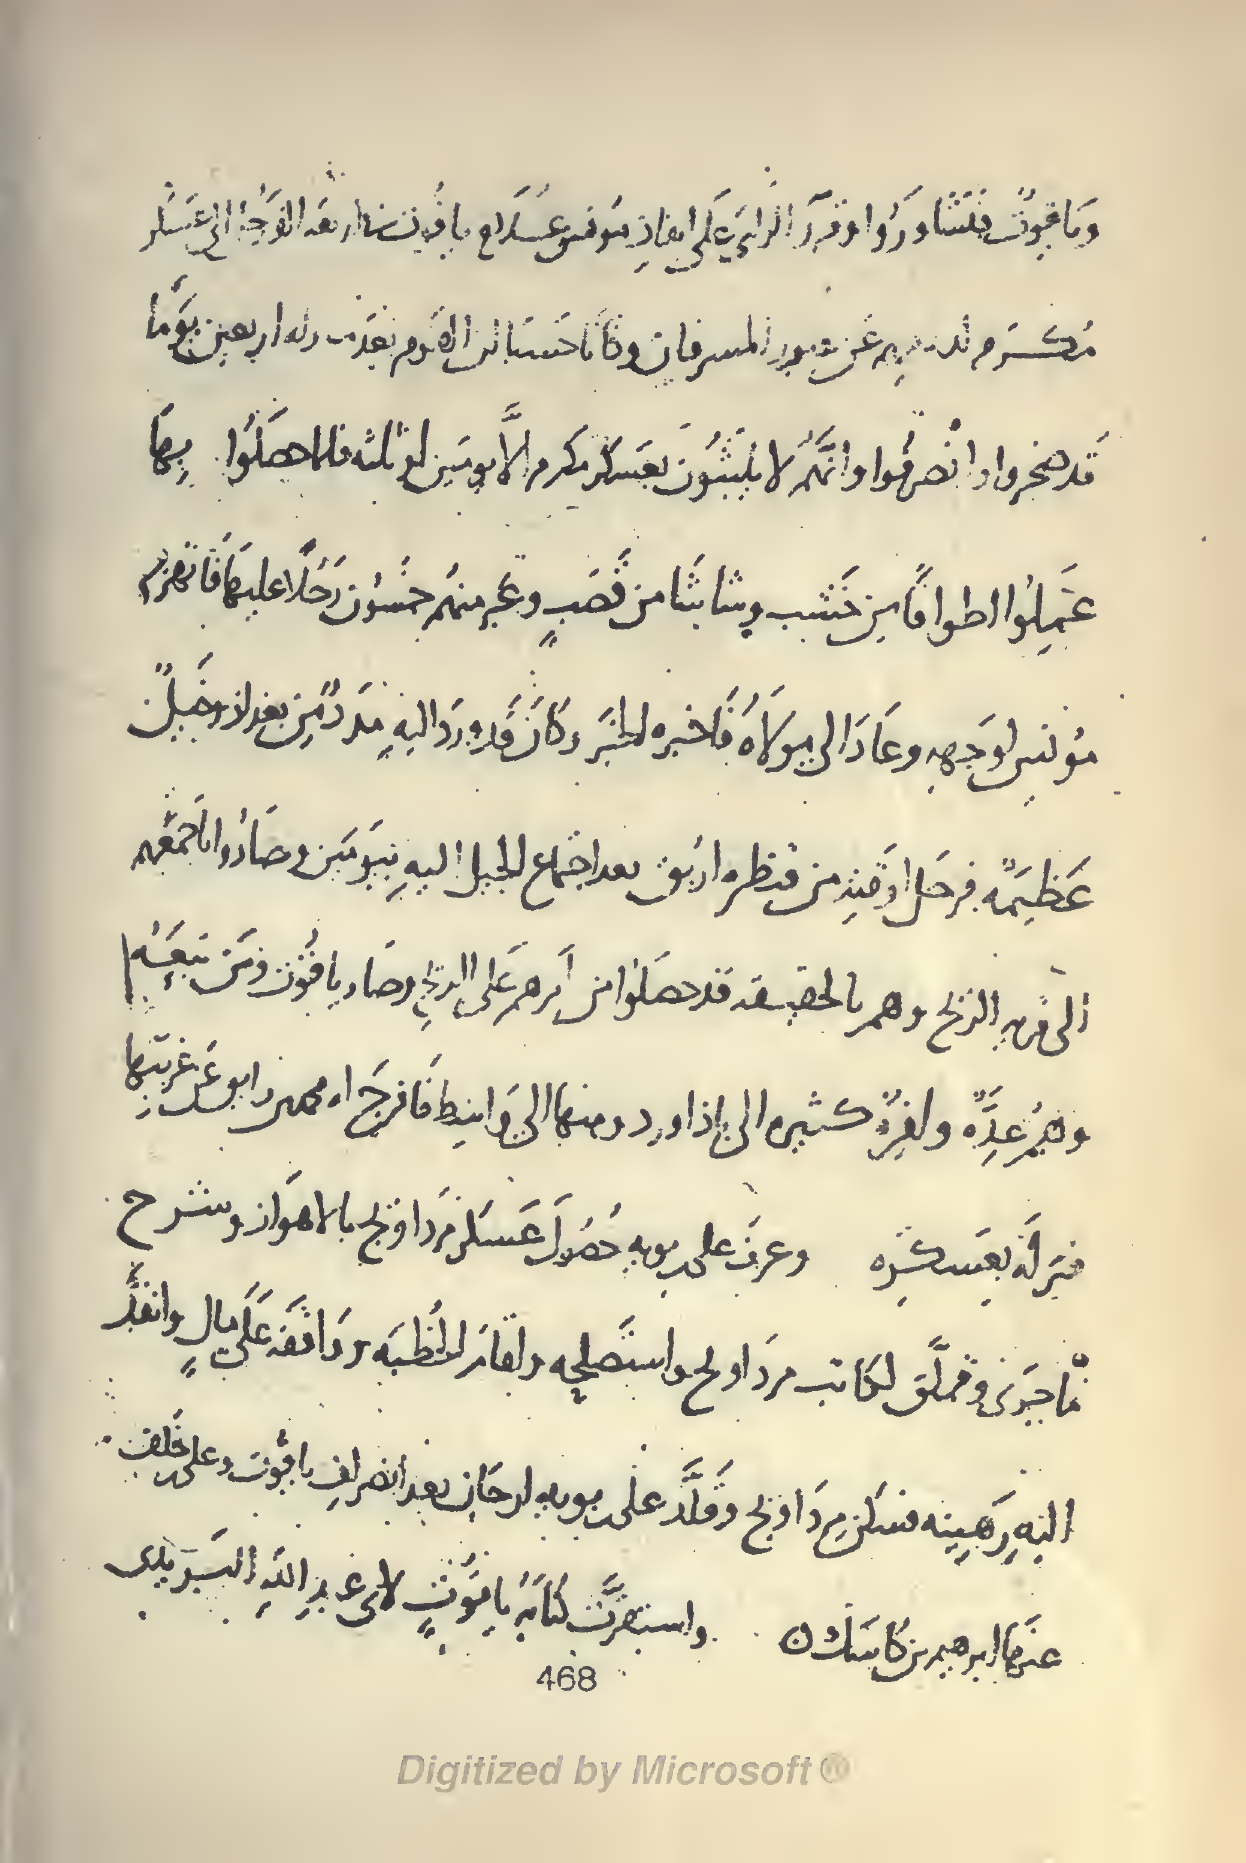 وياقوت فتشاوروا وقر الرأي على انفاذ مونس غلام ياقوت في اربعه الف رجل الى عسكر
مكرم عن عبور المسرقان وكانا حسبا ان القوم بعد اربعين يوما
قد ضجروا وانصرفوا وانهم لا يلبثون بعسكر مكرم الا يومين او ثلثه فلما حصلوا بها
عملوا اطوافا من خشب وشاشا من قصب وعبر منهم خمسون رجلا عليها فانهزم
مونس لوجهه وعاد الى مولاه فاخبره الخبر وكان قد ورد اليه مدد من بغداذ وخيل
عظيمة فرحل لوقته من قنطره اربق بعد اجتماع الخيل اليه بيومين وصاروا باجمعهم
الى قريه الزيخ وهم بالحقيقه قد حصلوا من امرهم على الريح وصار ياقوت ومن تبعه
وهم عدة وافرة كثيره الى باذاورد ومنها الى واسط فافرج له محمد بن رايق عن غربيها
فنزله بعسكره وعرف على بن بويه حصول عسكر مرداويج بالاهواز وشرح
ما جرى وتملق لكاتب مرداويج واستصلحه واقام الخطبه ووافقه على مال وانفذ
اليه رهينه فسكن مرداويج وقلد على بن بويه ارجان بعد انصراف ياقوت وعلى بن خلف
عنها ابرهيم بن كاسك ن واستقرت كتابة ياقوت لابى عبد الله البريدى
468
Digitized by Microsoft ®